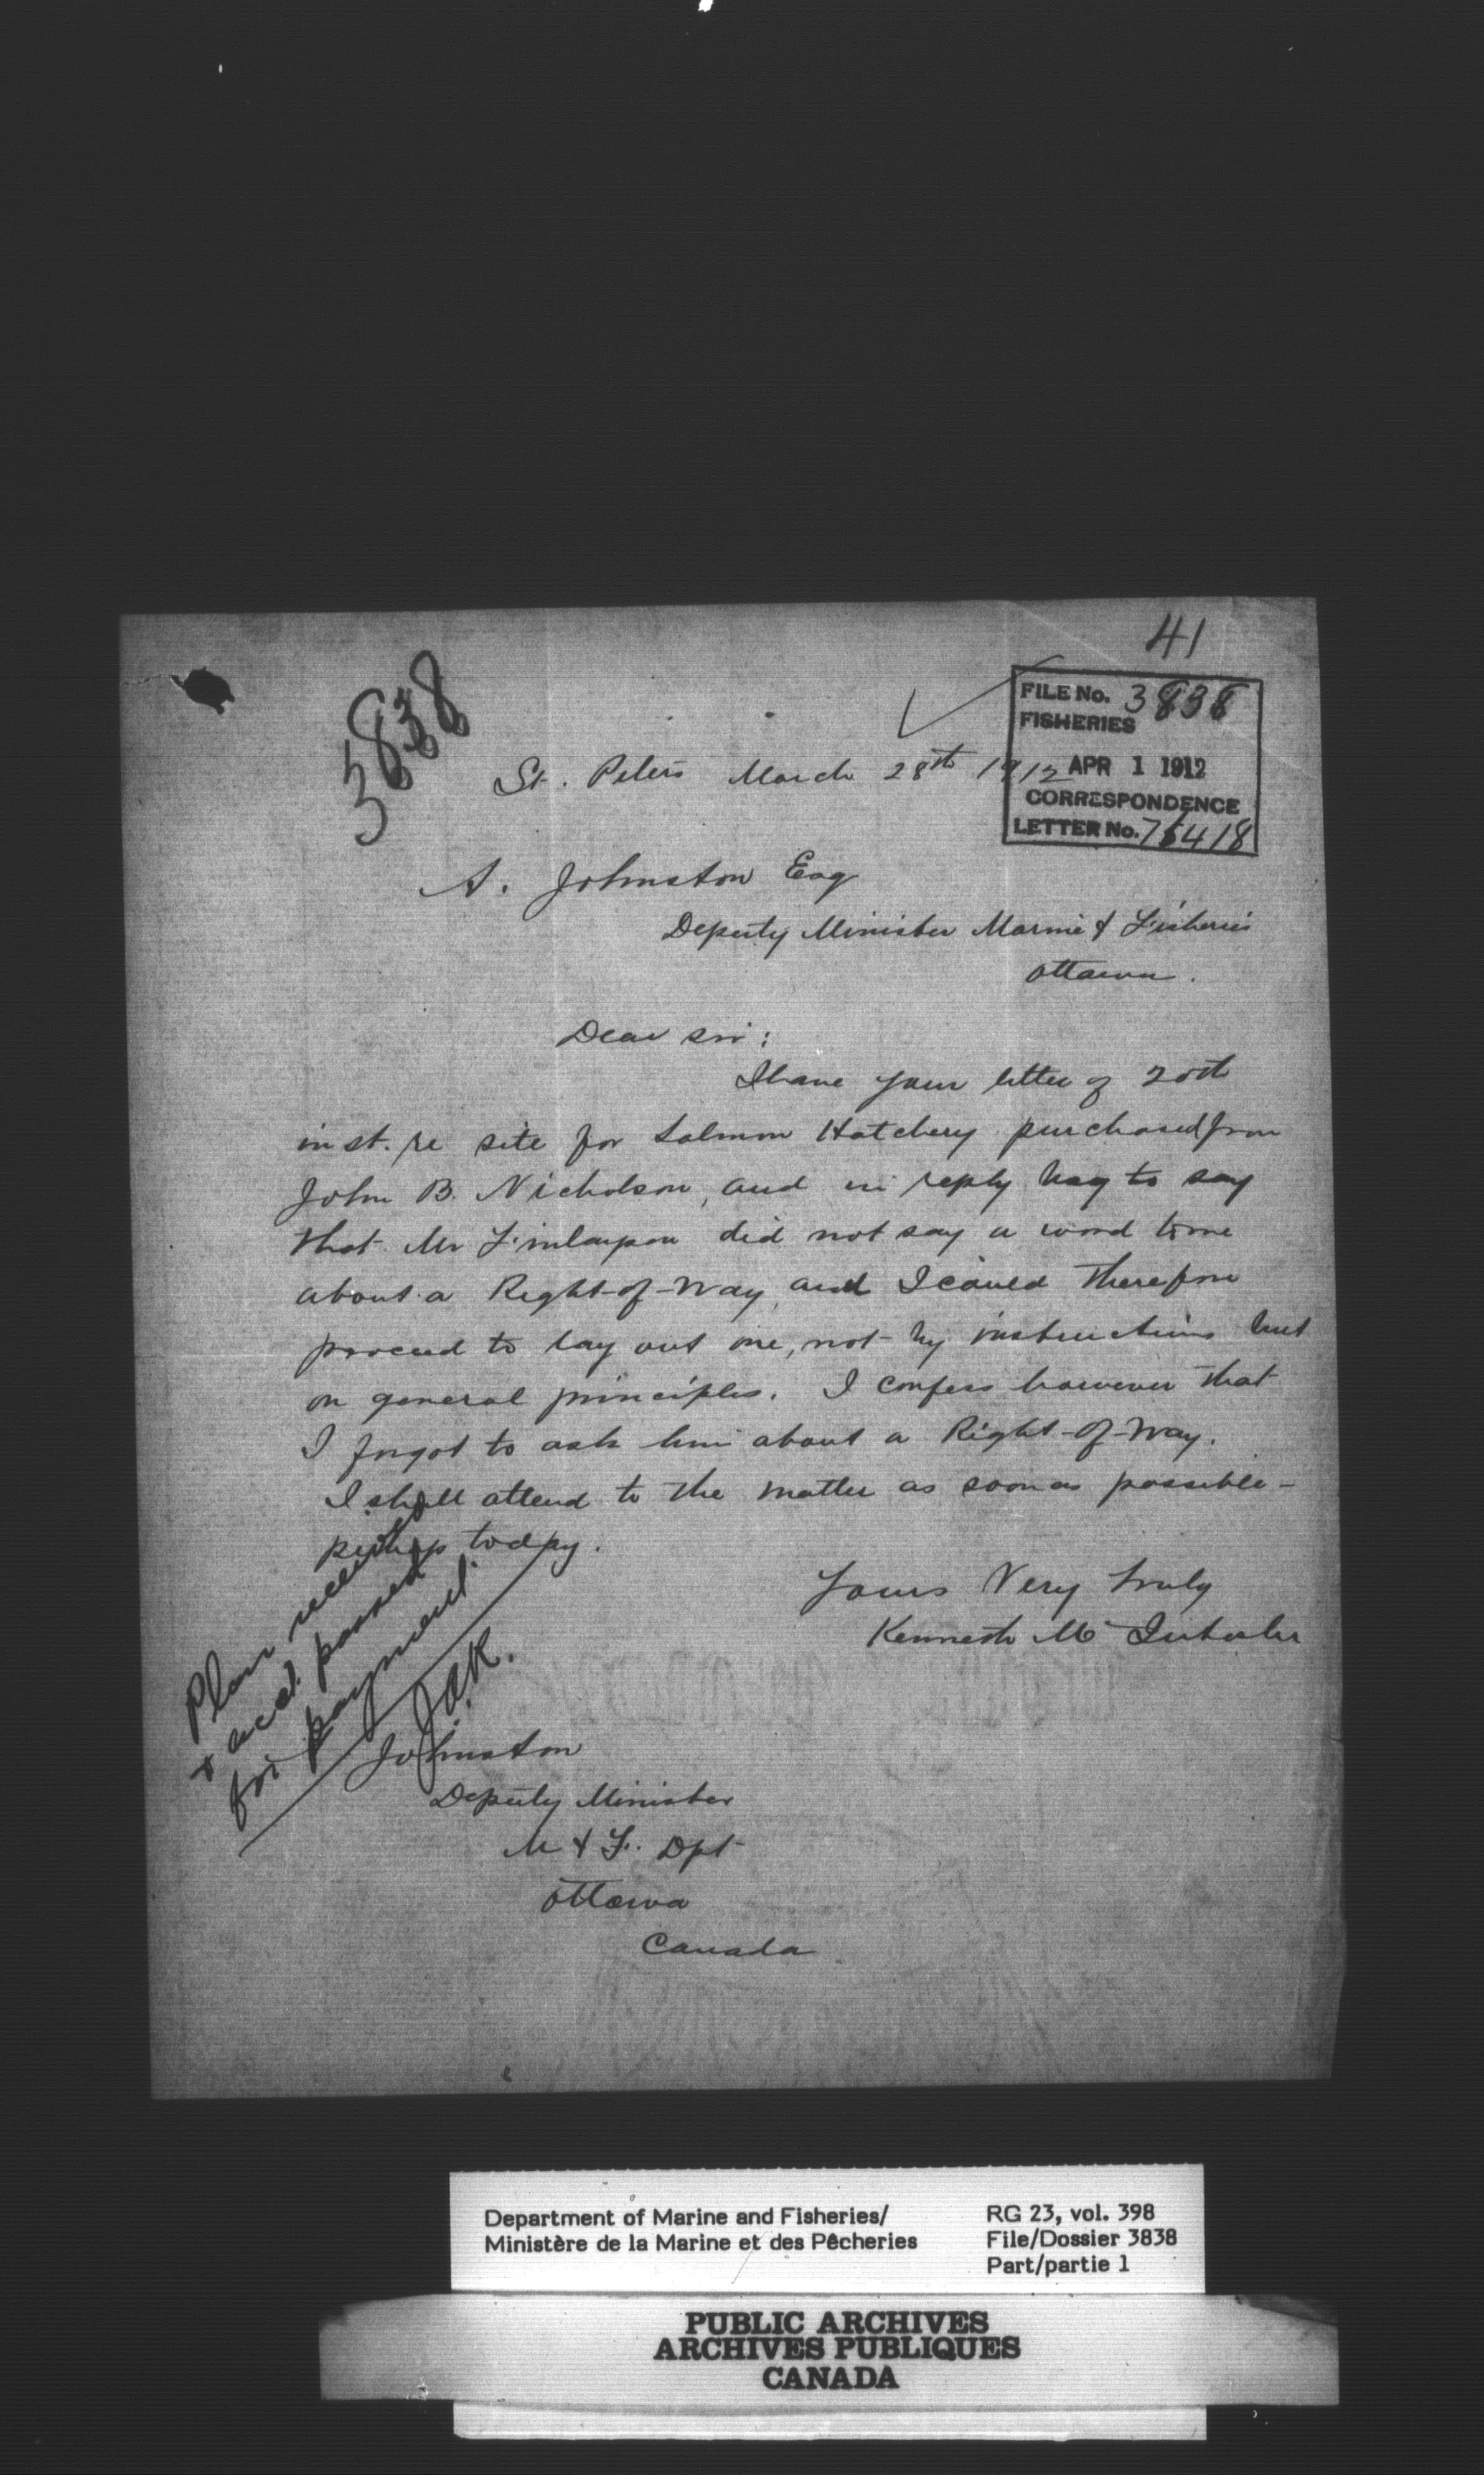 41
3838
FILE No. 3838
FISHERIES
APR 1 1912
CORRESPONDENCE
LETTER No. 75418
St. Peters March 28th 1912
A. Johnston Esq
Deputy Minister Marine & Fisheries
Ottawa.
Dear Sir:
I have your letter of 20th
inst. re site for Salmon Hatchery purchased from
John B. Nicholson, and in reply beg to say
that Mr Finlayson did not say a word to me
about a Right-of-Way, and I could therefore
proceed to lay out one, not by instructions but
on general principles. I confess however that
I forgot to ask him about a Right-of-Way.
I shall attend to the matter as soon as possible-
perhaps today.
Yours Very truly
Kenneth Mc
Plan received
& acct. passed
for payment.
J.A.R.
Johnston
Deputy Minister
M & F. Dpt
Ottawa
Canada
Department of Marine and Fisheries/
Ministère de la Marine et des Pêcheries
RG 23, vol. 398
File/Dossier 3838
Part/partie 1
PUBLIC ARCHIVES
ARCHIVES PUBLIQUES
CANADA